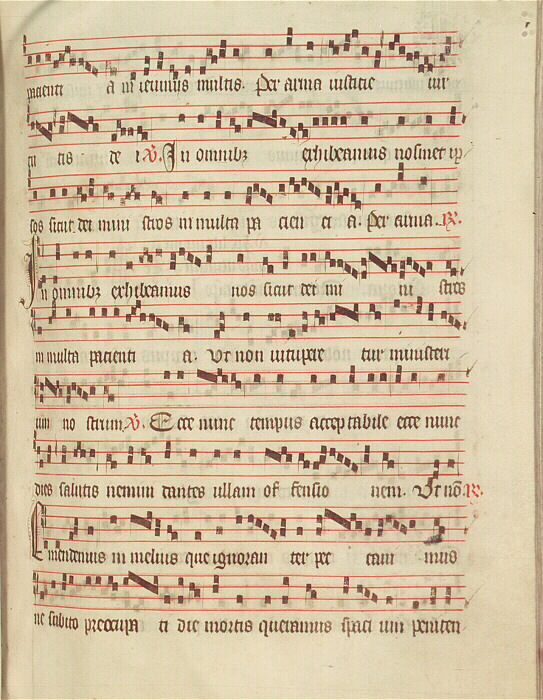 pacienti a in ieiuniis multis. Per arma iusticie vir
tu tis de i ℣. In omnibz exhibeamus nosmet ip
sos sicut dei mini stros in multa pa cien ci a. Per arma. ℟.
In omnibz exhibeamus nos sicut dei mi ni stros
in multa pacienti a. Ut non vitupere tur ministeri
um no strum ℣. Ecce nunc tempus acceptabile ecce nunc
dies salutis nemini dantes ullam of fensio nem. Ut nō ℟.
Emendemus in melius que ignoran ter pec cavi mus
ne subito preoccupa ti die mortis queramus spaci um peniten